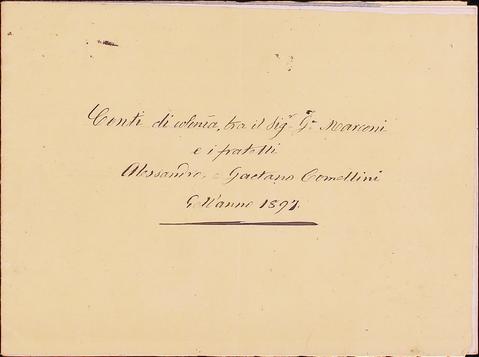 Conti di colonia, tra il Sigr. Gr. Marconi
e i fratelli
Alessandro e Gaetano Comellini
Dell'anno 1897